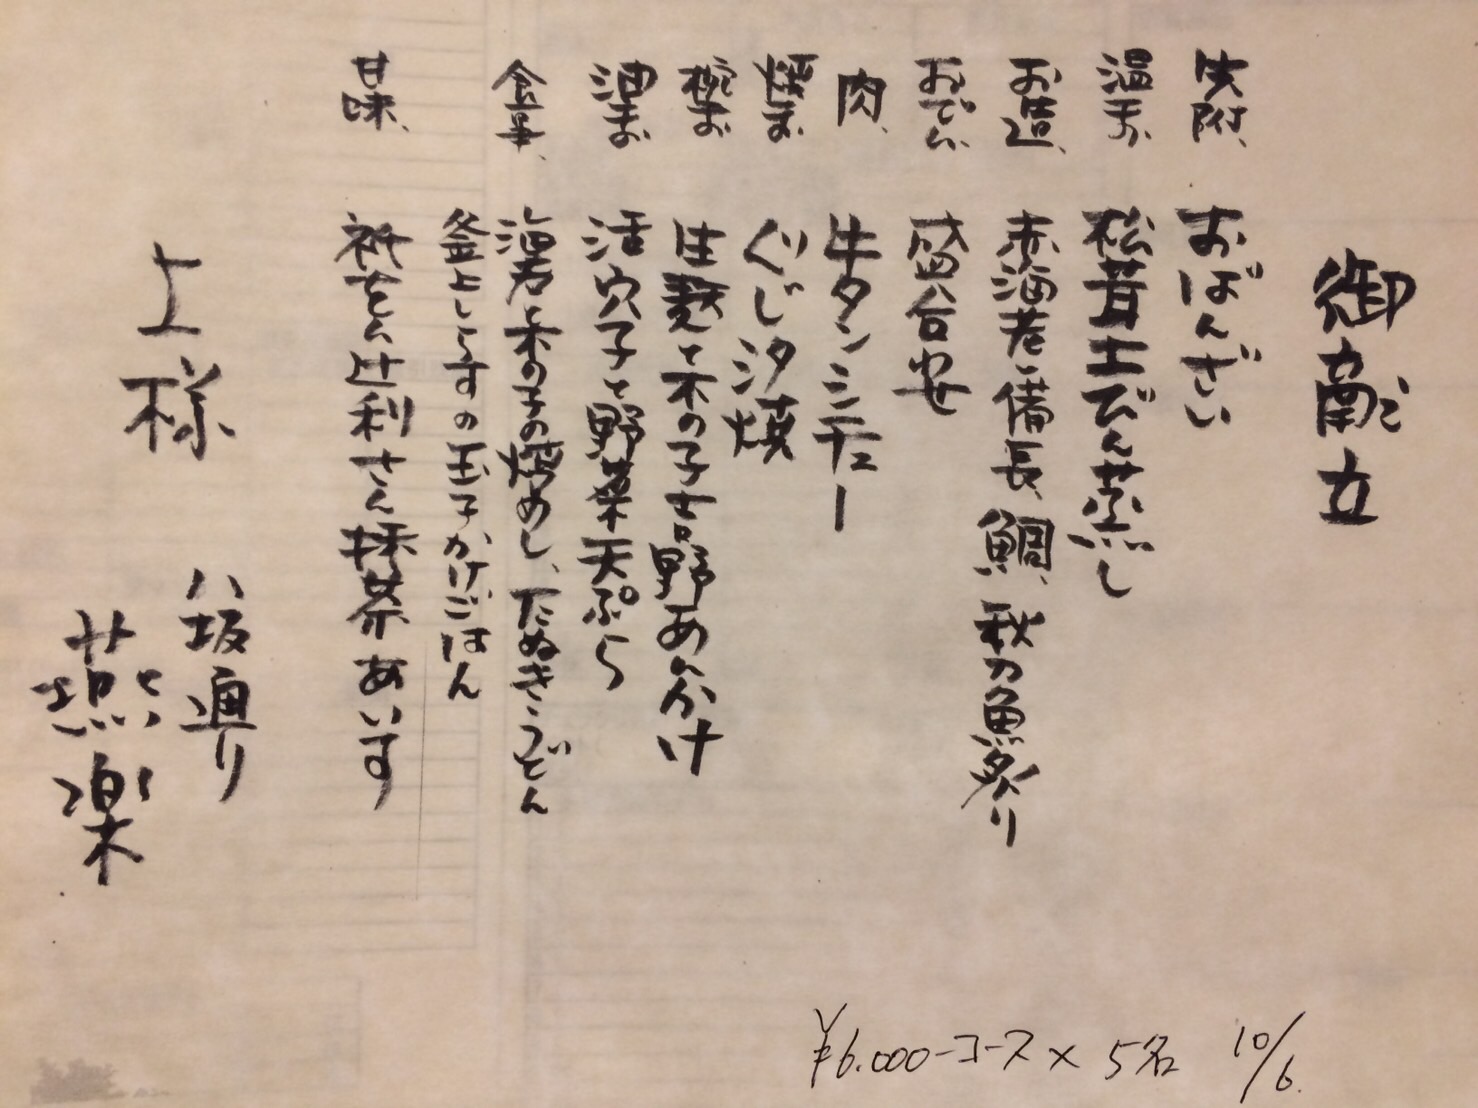 御献立
先附、おばんざい
温物 松茸土びん蒸し
お造、赤海老、備長、鯛、秋刀魚炙り
おでん 盛合せ
肉、牛タンシチュー
焼物 ぐじ汐焼
椀物 生麩と木の子吉野あんかけ
油物 活穴子と野菜天ぷら
食事、海老と木の子の焼めし、たぬきうどん
釜上しらすの玉子かけごはん
甘味、祇をん辻利さん抹茶あいす
上様
八坂通り
燕楽
¥6.000-コース×5名 10/6.